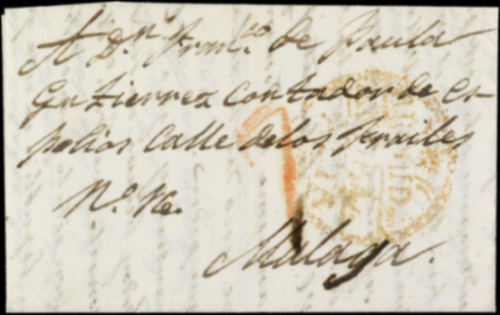 A Dn. Franco. de Paula
Gutierrez Contador de Es-
polios Calle de los Frailes
No. 16.
Malaga.